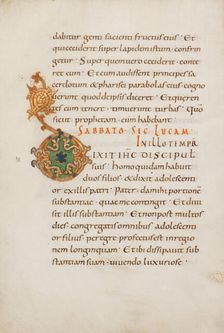 dabitur genti facienti fructus eius · Et
qui ceciderit super lapidem istum · confrin
getur · Super quem vero ceciderit · conte
ret eum · Et cum audissent principes sa
cerdotum & pharisei parabolas eius · cogno
verunt quod de ipsis diceret · Et queren
tes eum tenere · timuerunt turbas · Quo
niam sicut prophetam eum habebant ·
SABBATO · SEC LUCAM ·
IN ILLO TEMPR
DIXIT IHC DISCIPUL
suis homo quidam habuit
duos filios · & dixit adolescenti
or ex illis patri · Pater · da mihi portionem
substantiae · quae me contingit · Et divi
sit illis substantiam · Et non post multos
dies · congregatis omnibus adolescenti
or filius · peregre profectus est in regio
nem longinquam · Et ibi dissipavit sub
stantiam suam · vivendo luxuriose ·